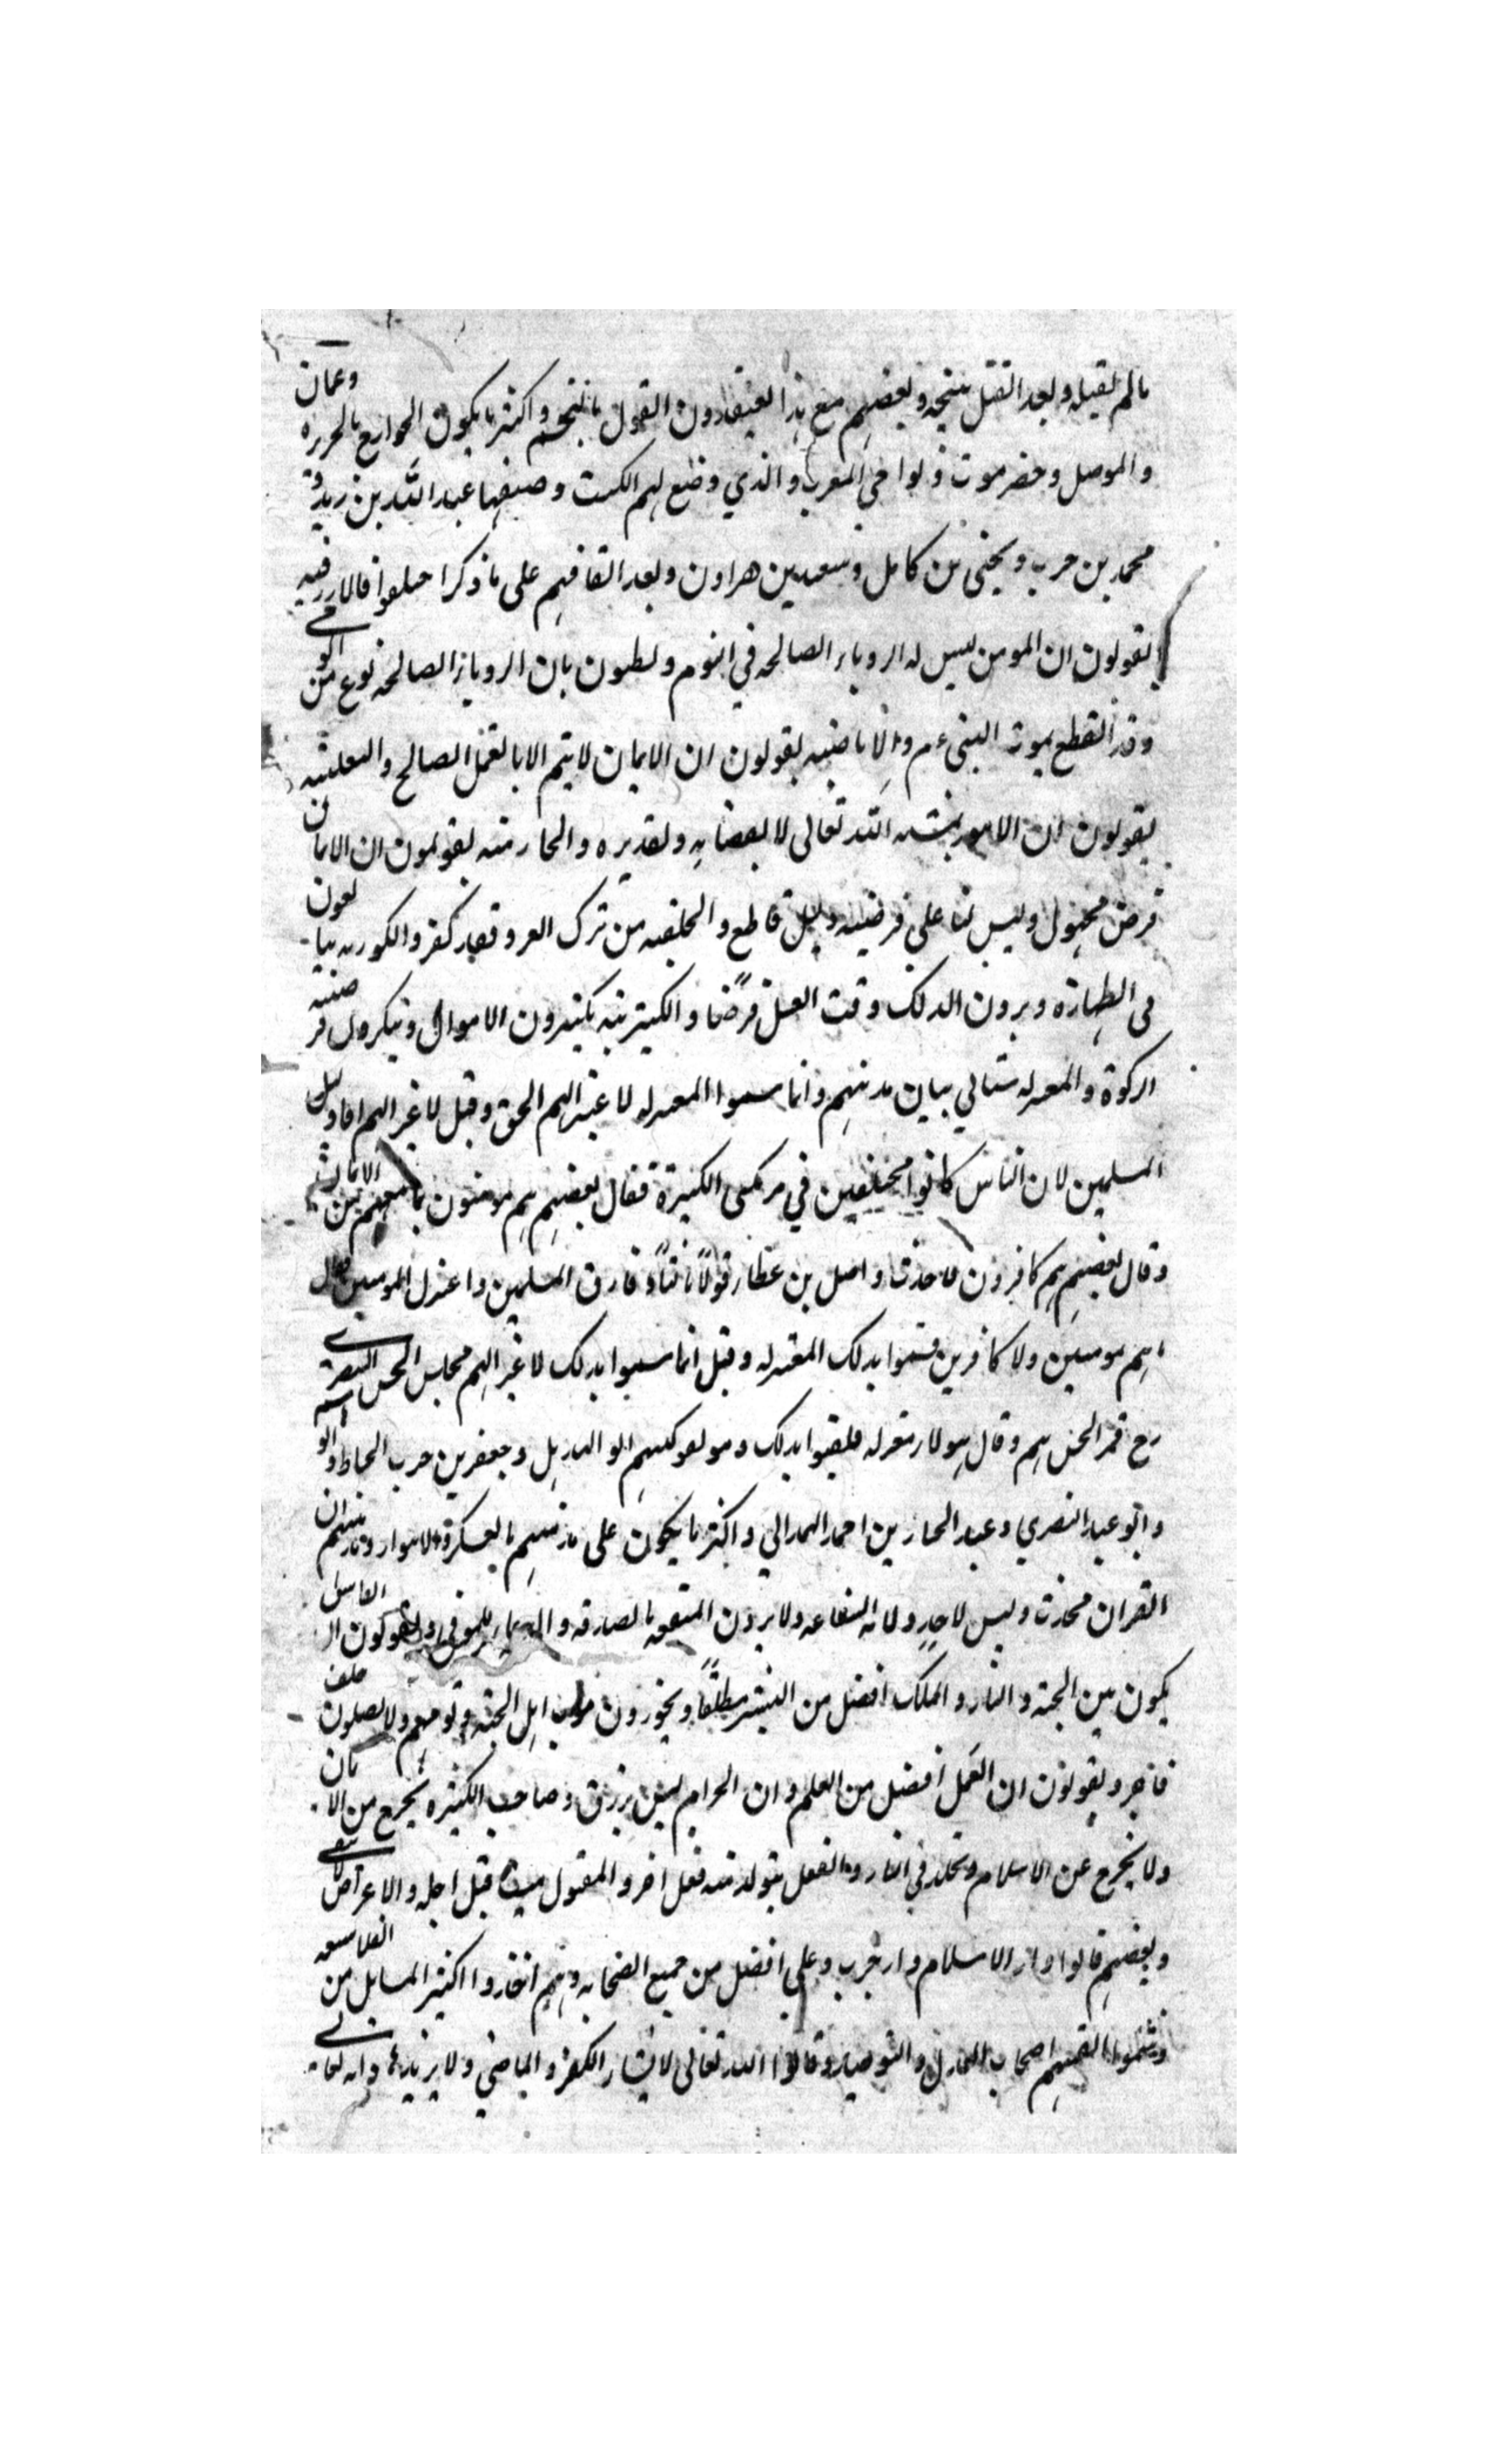 مالم يقتله وبعد القتل ينتجه وبعضهم مع هذا يعتقدون القول بالتنجم واكثر ما يكون الخوارج بالجزيره وعمان
والموصل وحضرموت ونواحي المغرب والذي وضع لهم الكتب وصنفها عبد الله بن زيد و
محمد بن حرب ويحيى بن كامل وسعيد بن هراون وبعد اتفاقهم على ما ذكرا ختلفوا فالازرقيه
يقولون ان المومن ليس له الروياء الصالحه في النوم وان الروياء الصالحه نوع من الو حي
وقد انقطع بموت النبي عم والاباضيه يقولون ان الايمان لا يتم الا بالعمل الصالح والثعلبيه
يقولون ان الامور بمشيه الله تعالى لا بقضايه وتقديره والحازميه يقولون ان الايما ن
فرض مجهول وليس لنا على فرضيته دليل قاطع والخلفيه من ترك الغزو فقد كفر والكوزيه يبا لغون
في الطهارة ويرون الدلك وقت الغسل فرضًا والكنزيه يكنزون الاموال وينكرون فر ضيته
الزكوة والمعتزله ستاتي بيان مذهبهم وانما سموا المعتزله لاعتزالهم الحق وقيل لاعتزالهم اقاويل
المسلمين لان الناس كانوا مختلفين في مرتكبي الكبيرة فقال بعضهم هم مومنون بما معهم من الايمان
وقال بعضهم هم كافرون فاحدث واصل بن عطاء قولًا ثالثًا وفارق المسلمين واعتزل المومنين فقال
ما هم مومنين ولا كافرين فسموا بذلك المعتزله وقيل انما سموا بذلك لاعتزالهم مجلس الحسن البصري
رح فمر الحسن بهم وقال هولاء معتزله فلقبوا بذلك ومولفو كتبهم ابو الهذيل وجعفر بن حرب الخياط وابو
وابو عبد البصري وعبد الجبار بن احمد الهمداني واكثر ما يكون على مذهبهم بالعسكر والاهواز ومذهبهم ان
القران محدث وليس لاحد ولا له الشفاعه ولا يرون المنفعه بالصدقه والدعاء للموتى ويقولون ا الفاسق
يكون بين الجنة والنار والملك افضل من البشر مطلقًا ويجوزون موت اهل الجنه ونومهم ولا يصلون خلف
فاجر ويقولون ان العمل افضل من العلم وان الحرام ليس برزق وصاحب الكبيره يخرج من الا يمان
ولا يخرج عن الاسلام ويخلد في النار والفعل يتولد منه فعل اخر والمقتول ميت قبل اجله والاعراض لا تبقى
وبعضهم قالوا دار الاسلام دار حرب وعلي افضل من جميع الصحابه وهم اتخذوا اكثر المسايل من الفلاسفه
وسموا انفسهم اصحاب العدل والتوحيد وقالوا الله تعالى لا يشاء الكفر والمعاصي ولا يريدها وانه تعا لى